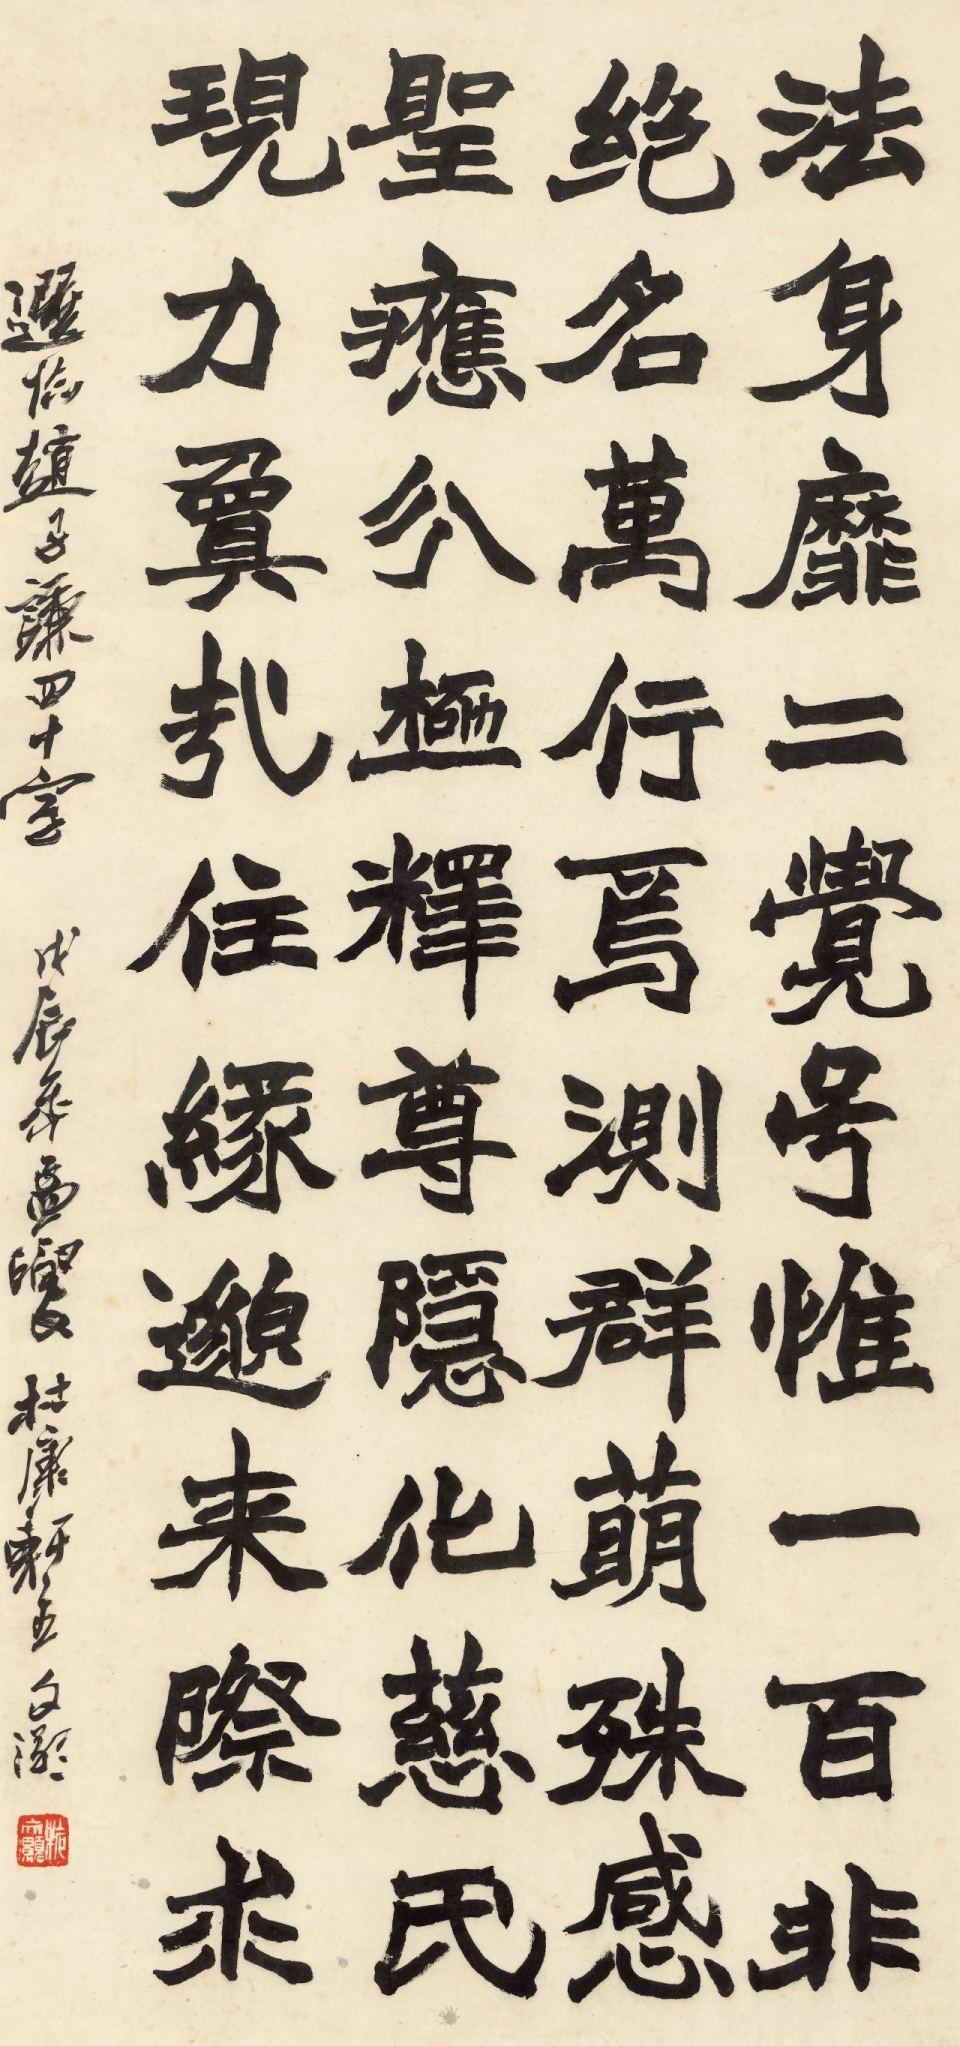 法身靡二覺号惟一百非
絶名萬行焉測群萌殊感
聖應分極釋尊隱化慈氏
現力奠哉住緣邈来際求
選臨趙子謙四十字 戊辰年 村康軒主 文灝